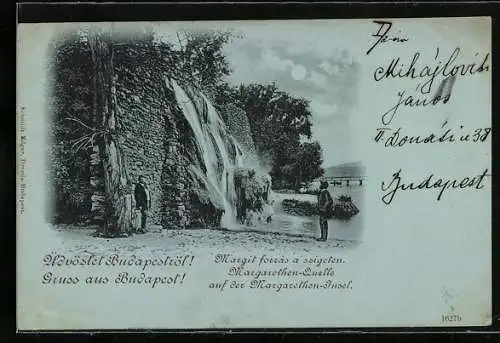 Mihájlovits
János
II Donáti u 38
Budapest
Üdvözlet Budapestről!
Gruss aus Budapest!
Margit forrás a szigeten.
Margarethen-Quelle
auf der Margarethen-Insel.
1627b